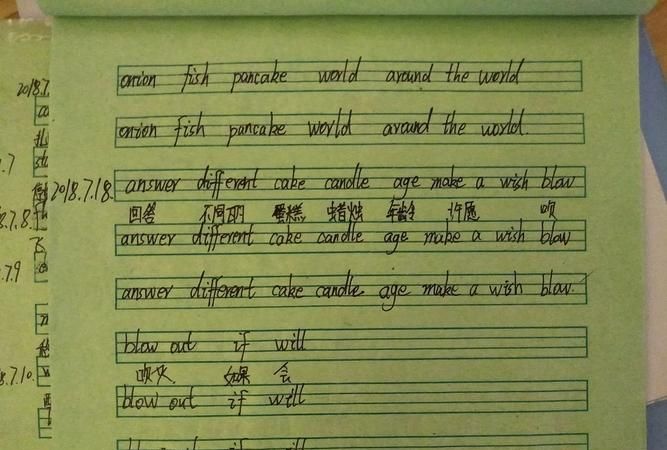 onion fish pancake world around the world
onion fish pancake world around the world.
2018.7.18. answer different cake candle age make a wish blow
回答 不同的 蛋糕 蜡烛 年龄 许愿 吹
answer different cake candle age make a wish blow
answer different cake candle age make a wish blow.
blow out if will
吹灭 如果 会
blow out if will